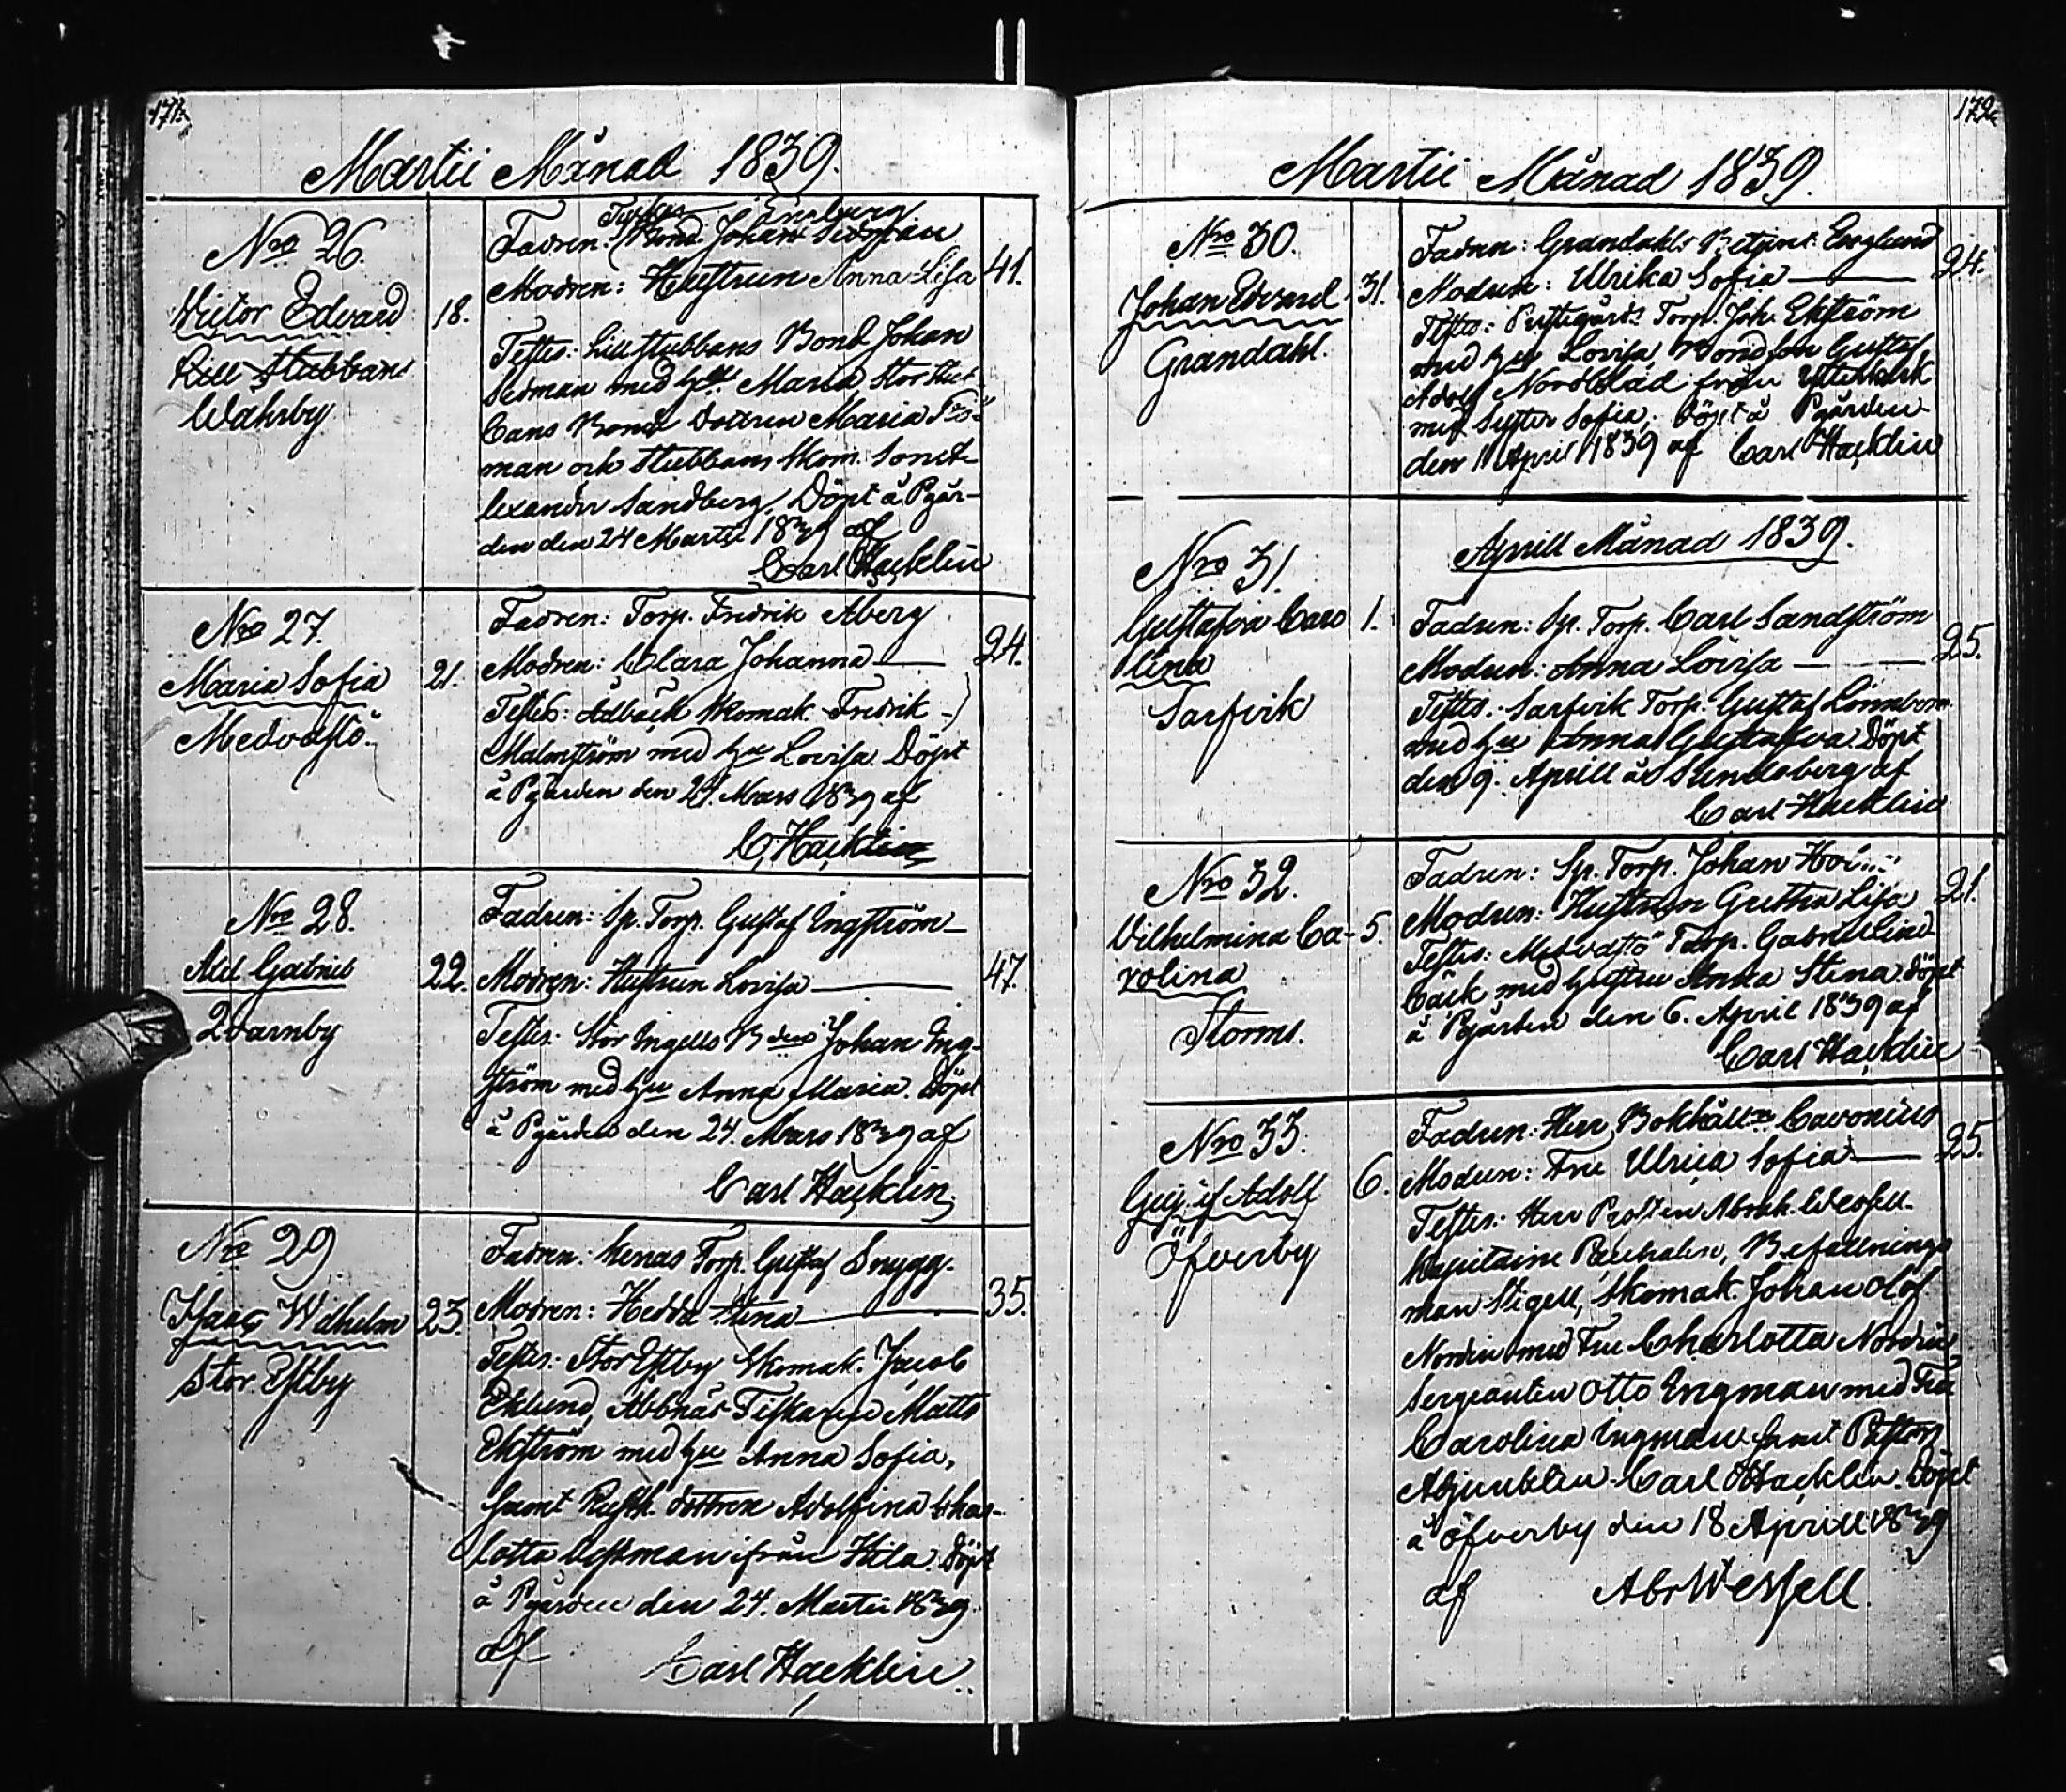 171.
Martii Månad 1839.
Nro 26.
Victor Edvard
Lill Stubbans
Wåhrby
18.
Torpar
Fadren: Bond. Johan Sedman
Modren: Hustrun Anna Lisa
41.
Testes: Lillstubbans Bond Johan
Sedman med hu Maria Storstub-
bans Bond Dottren Maria
man och Stubbans Skom. Son
lexander Sandberg. Döpt å Pgår-
den den 24 Martii 1839 af
Carl Hacklin
Nro 27.
Maria Sofia
Medvastö.
21.
Fadren: Torp. Fredrik Åberg
Modren: Clara Johanna
24.
Testes: Ådbäck Skomak. Fredrik
Malmström med hu Lovisa. Döpt
å Pgården den 24. Mars 1839 af
C. Hacklin
Nro 28.
Abel Gabriel
Qvarnby
22.
Fadren: Sp. Torp. Gustaf Ingström
Modren: Hustrun Lovisa
47.
Testes: Stor Ingells Bden Johan Ing-
ström med hu Anna Maria. Döpt
å Pgården den 24. Mars 1839 af
Carl Hacklin
Nro 29
Isaac Wilhelm
Stor Estby
23.
Fadren. Menas Torp. Gustaf Snygg.
Modren: Hedda Stina
35.
Testes: Stor Estby Skomak. Jacob
Eklund, Åbbnäs Fiskaren Matts
Ekström med hu Anna Sofia,
samt Rusth. dottren Adolfina Char-
lotta ifrån Hila. Döpt
å Pgården den 24. Martii 1839.
af Carl Hacklin.
172.
Martii Månad 1839.
Nro 30.
Johan Edvard
Grandahl.
31.
Fadren: Grandahls Betjent Englund
Modren: Ulrika Sofia
24.
Testes: Prestegårds Torp. Joh. Ekström
med hu Lovisa, Bondson Gustaf
Adolf Nordblad från Ytterkurk
med Syster Sofia; Döpt å Pgården
den 1 April 1839 af Carl Hacklin
Aprill Månad 1839.
Nro 31.
Gustafva Caro
lina
Sarfvik
1.
Fadren: Sp. Torp. Carl Sandström
Modren: Anna Lovisa
25.
Testes. Sarfvik Torp. Gustaf Lönnbom
med hu Anna Gustafva. Döpt
den 9. Aprill å Sundsberg af
Carl Hacklin
Nro 32.
Vilhelmina Ca-
rolina
Storms.
5.
Fadren: Sp. Torp. Johan
Modren: Hustrun Gretha Lisa
21.
Testes: Medvastö Torp. Gabriel Lind
bäck med hustru Anna Stina. Döpt
å Pgården den 6. April 1839 af
Carl Hacklin
Nro 33.
Gustaf Adolf
Öfverby
6.
Fadren: Herr Bokhållrn Cavonius
Modren: Fru Ulrica Sofia
25.
Testes: Herr Prosten Abrah. Wessell.
Kapitaine, Befallnings
man Stigell, Skomak. Johan Olof
Nordin med Fru Charlotta Nordin
Sergeanten Otto Ingman med Fru
Carolina Ingman samt Pastors
Adjunkten Carl Hacklin. Döpt
å Öfverby den 18 Aprill 1839
af Abr Wessell.